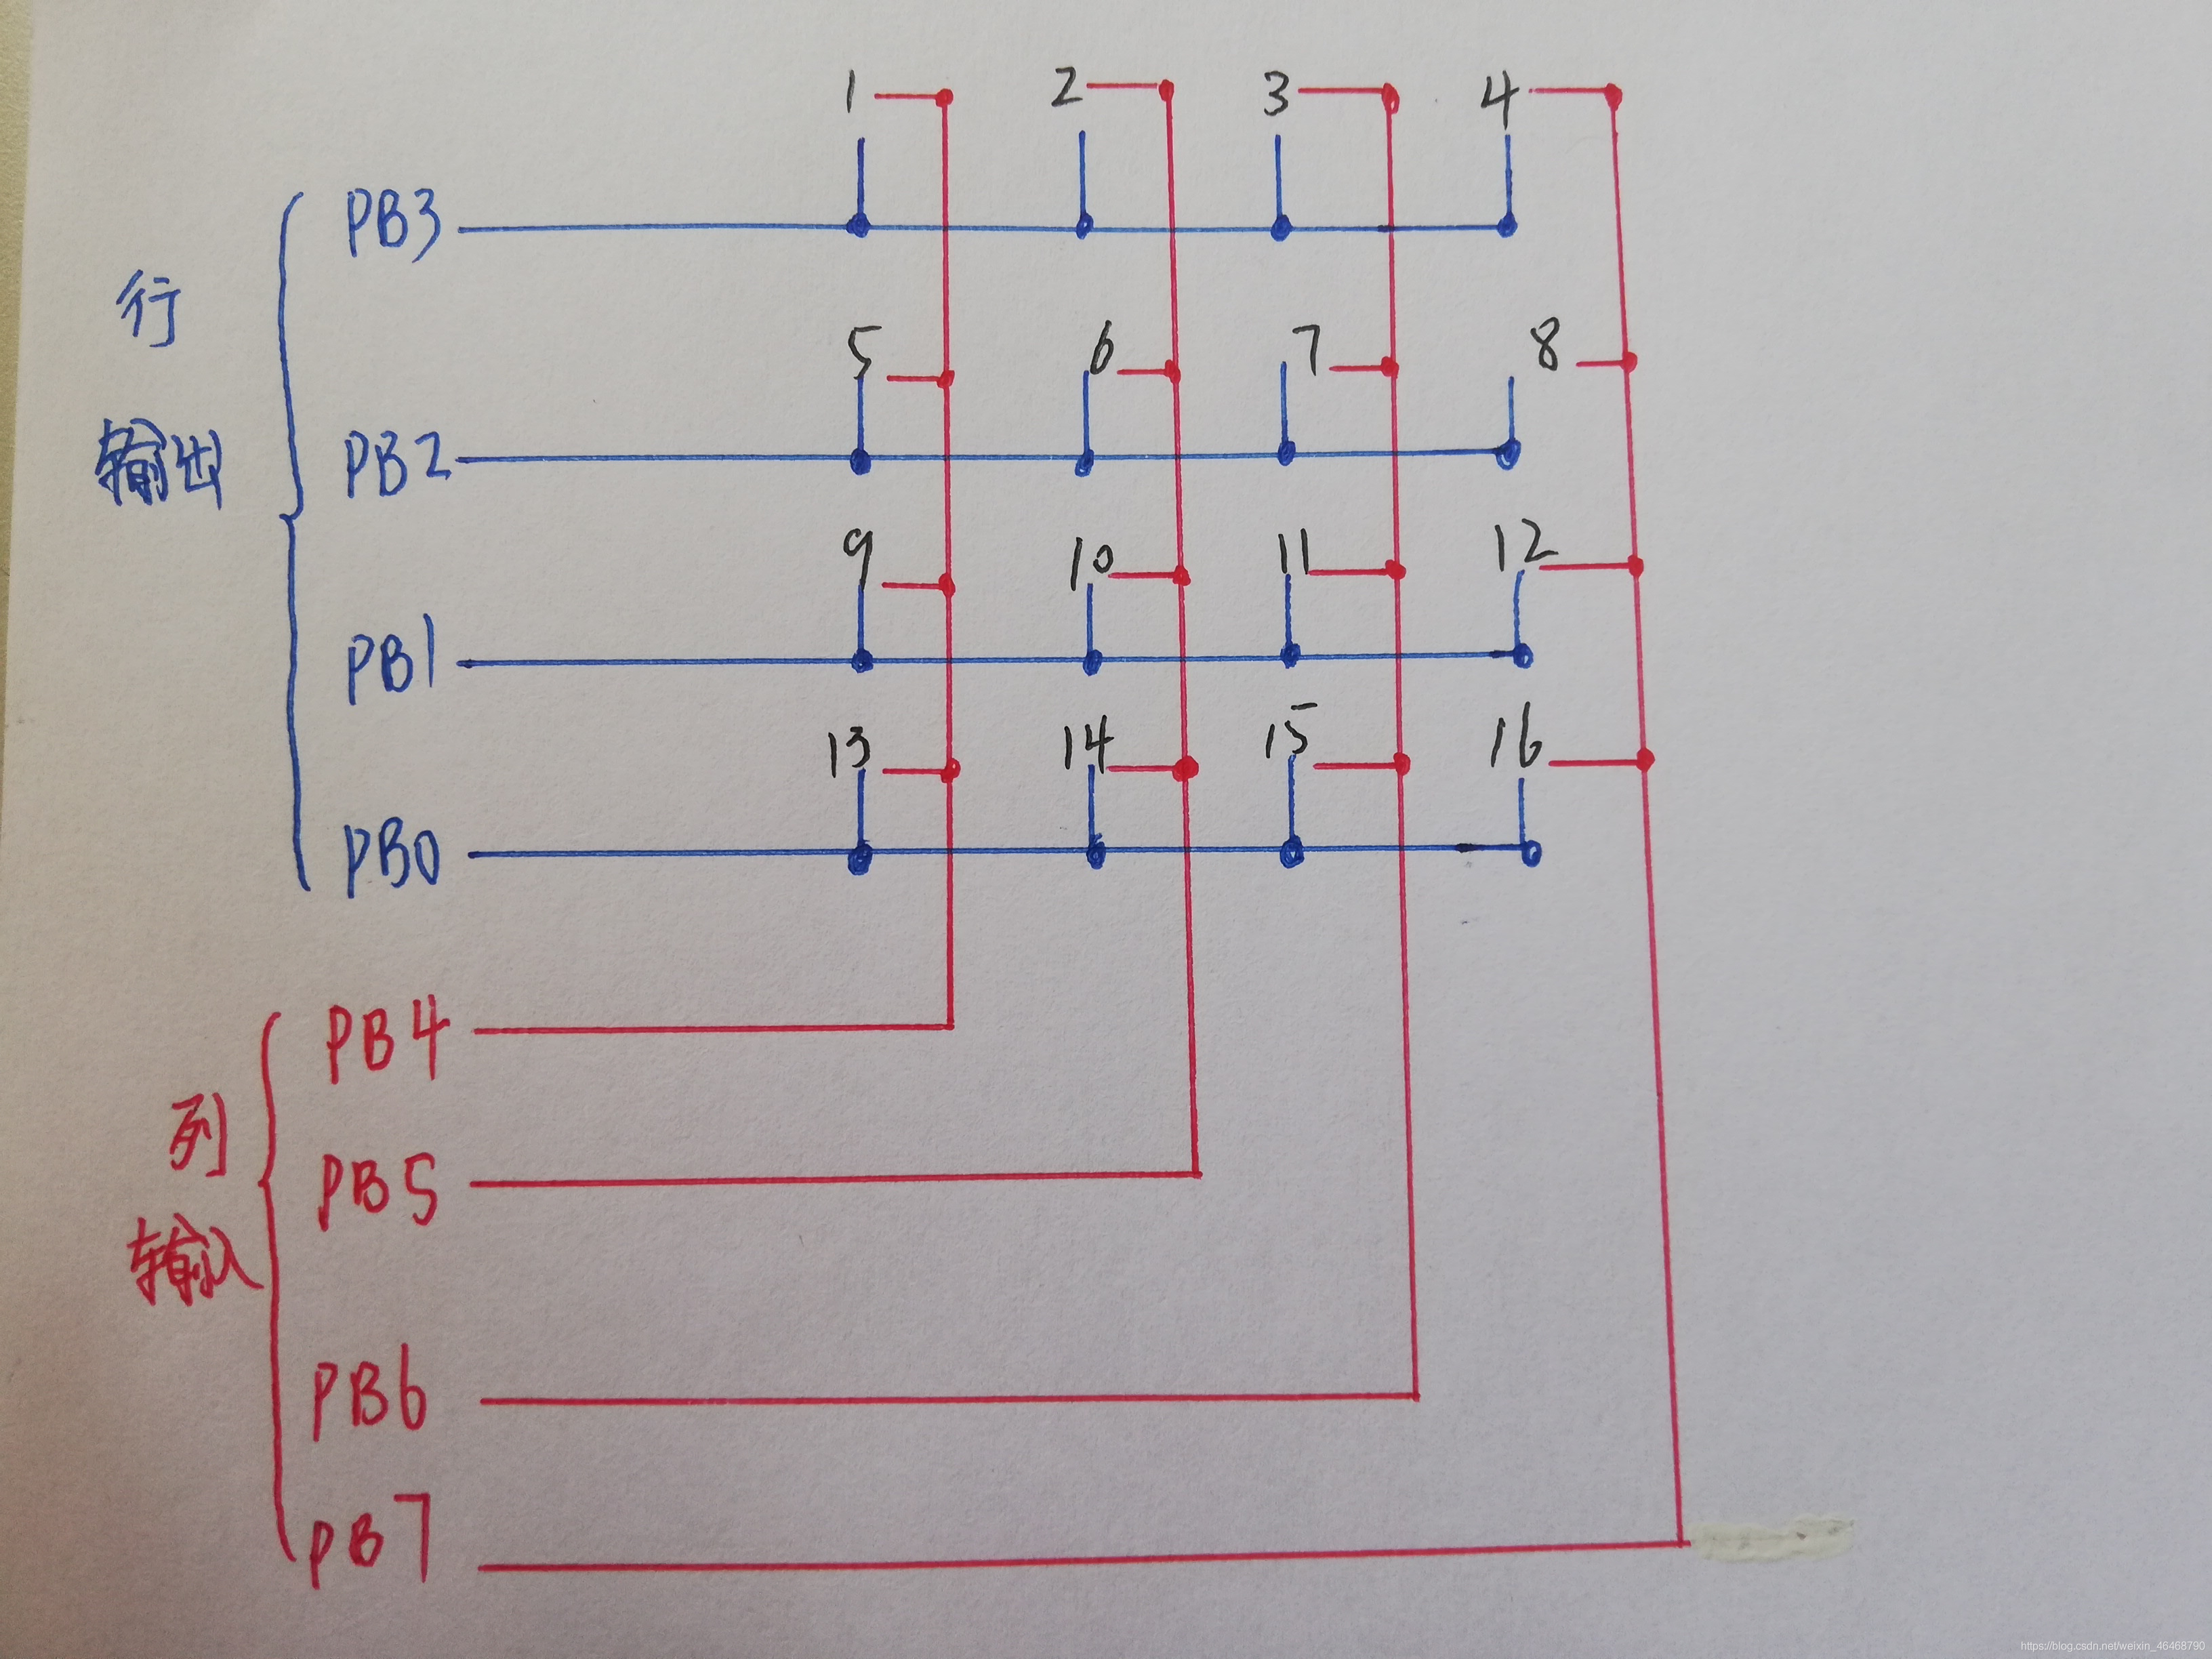 1 2 3 4
PB3
行
5 6 7 8
输出
PB2
9 10 11 12
PB1
13 14 15 16
PB0
PB4
列
PB5
输入
PB6
PB7
https://blog.csdn.net/weixin_46468790